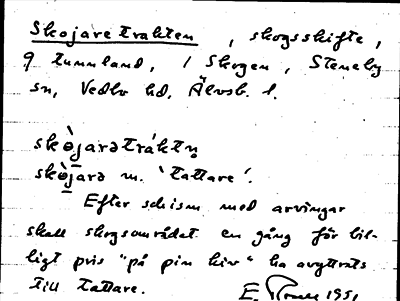 Skojaretrakten, skogsskifte,
9 tunnland, i Skogen, Steneby
sn, Vedbo hd, Älvsb. l.
skò̱jarətráktn̥
skò̱jarə m. 'tattare'.
Efter schism med arvingar
skall skogsområdet en gång för bil-
ligt pris "på pin kiv" ha avyttrats
till tattare.
E. 1951